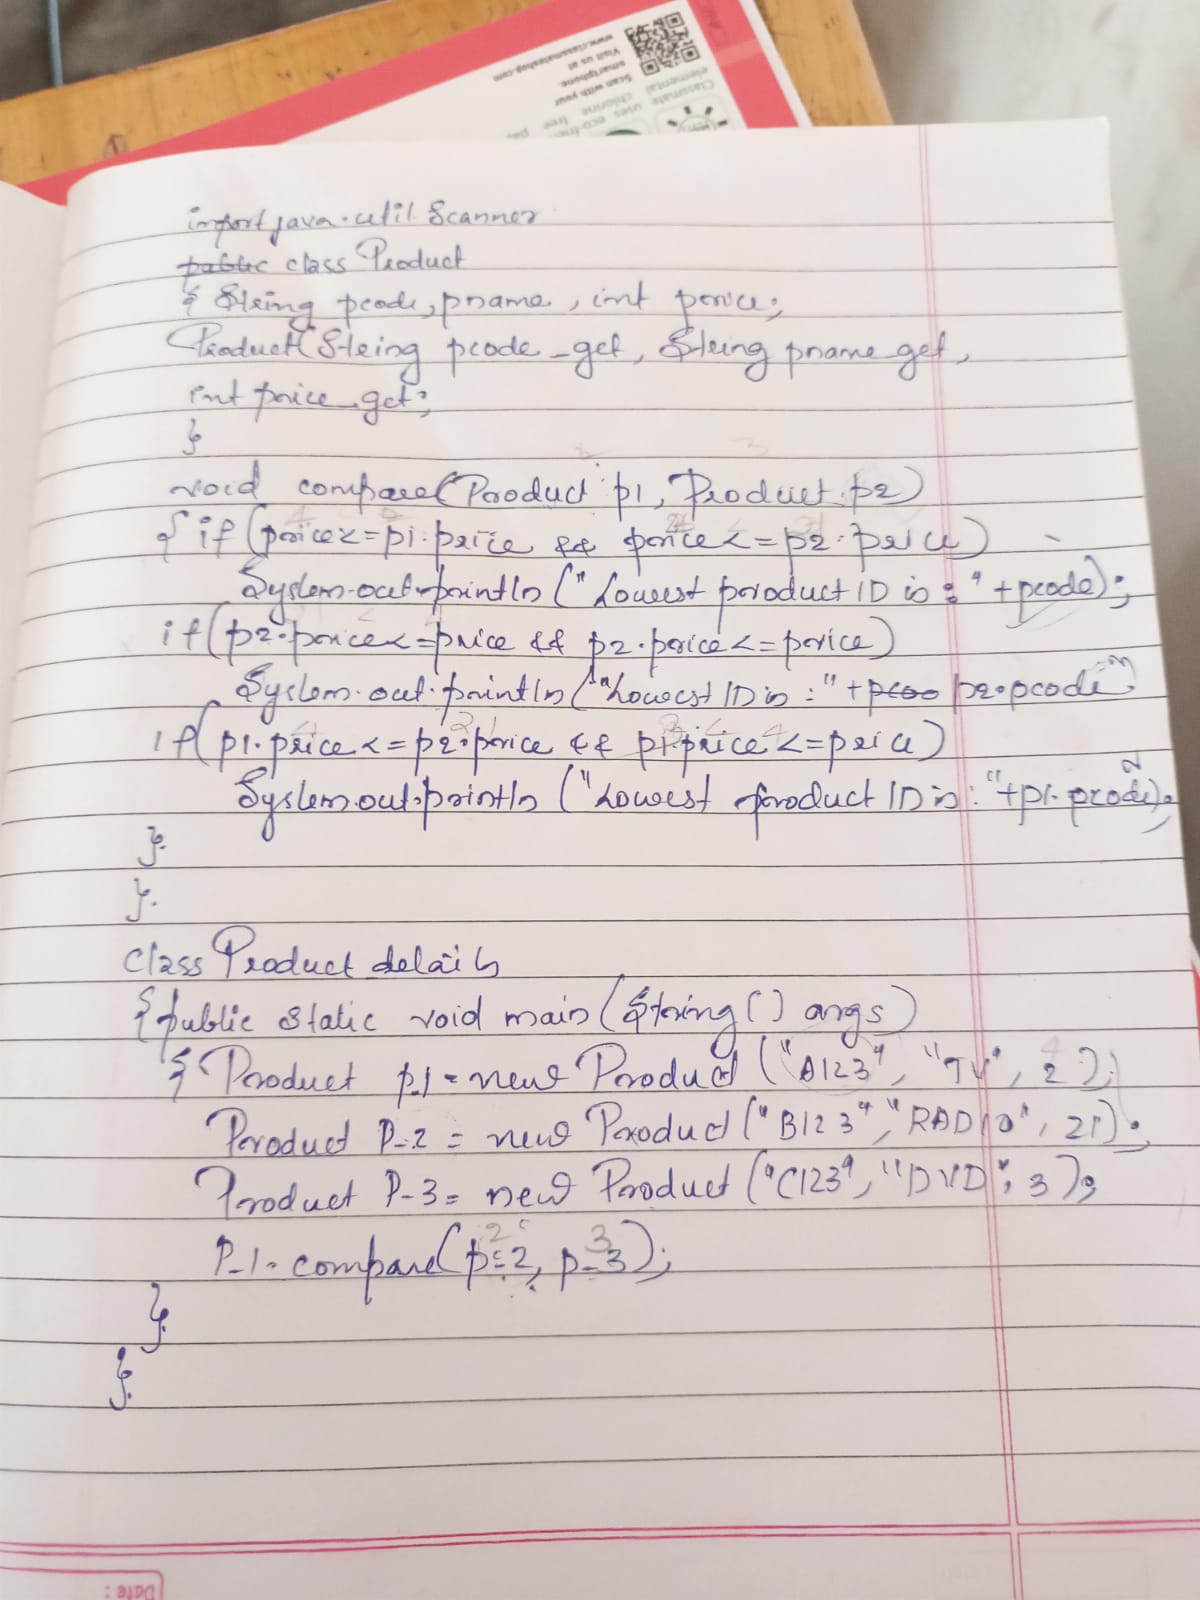 www.classmateshop.com
Visit us at
smartphone.
Scan with your
elemental
chlorine free
Classmate uses eco-frie
import java.util.Scanner
public class Product
{ String pcode, pname, int price;
Product(String pcode_get, String pname_get,
int price_get;
}
void compare(Product p1, Product p2)
{ if (price<=p1.price && price<=p2.price)
System.out.println("Lowest product ID is:"+pcode);
if(p2.price<=price && p2.price<=price)
System.out.println("Lowest ID is:"+pcoo p2.pcode
if(p1.price<=p2.price && p1.price<=price)
System.out.println("Lowest product ID is:"+p1.pcode);
}
}
class Product details
{public static void main(String() args)
{ Product p_1=new Product("A123", "TV", 2);
Product P_2 = new Product("B123","RADIO", 21);
Product P_3= new Product("C123","DVD", 3);
P_1.compare(p_2, p_3);
}
}
Date: